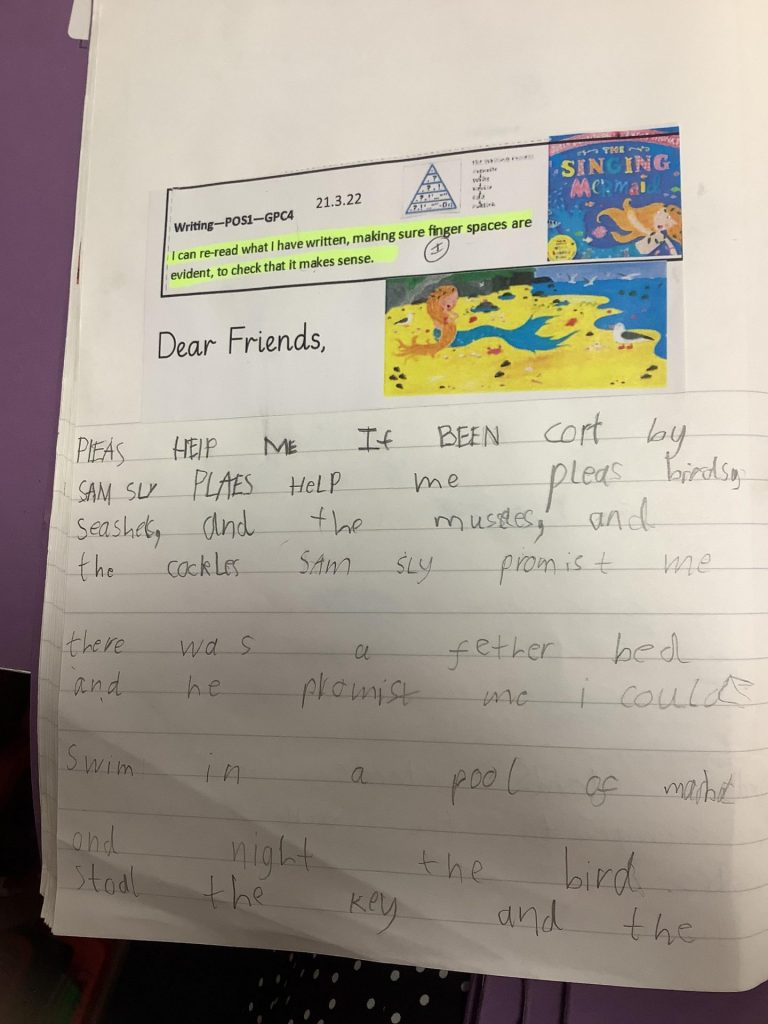 Writing—POS1—GPC4
21.3.22
THE
SINGING
MERMAID
I can re-read what I have written, making sure finger spaces are
evident, to check that it makes sense.
I
Dear Friends,
PlEAS HElP ME If BEEN cort by
SAM SLY PLAES HeLP me pleas birds,
seashels, and the mussles, and
the cockles SAm sLy promist me
there was a fether bed
and he promist me i could
swim in a pool of
ond night the bird
Stodl the key and the